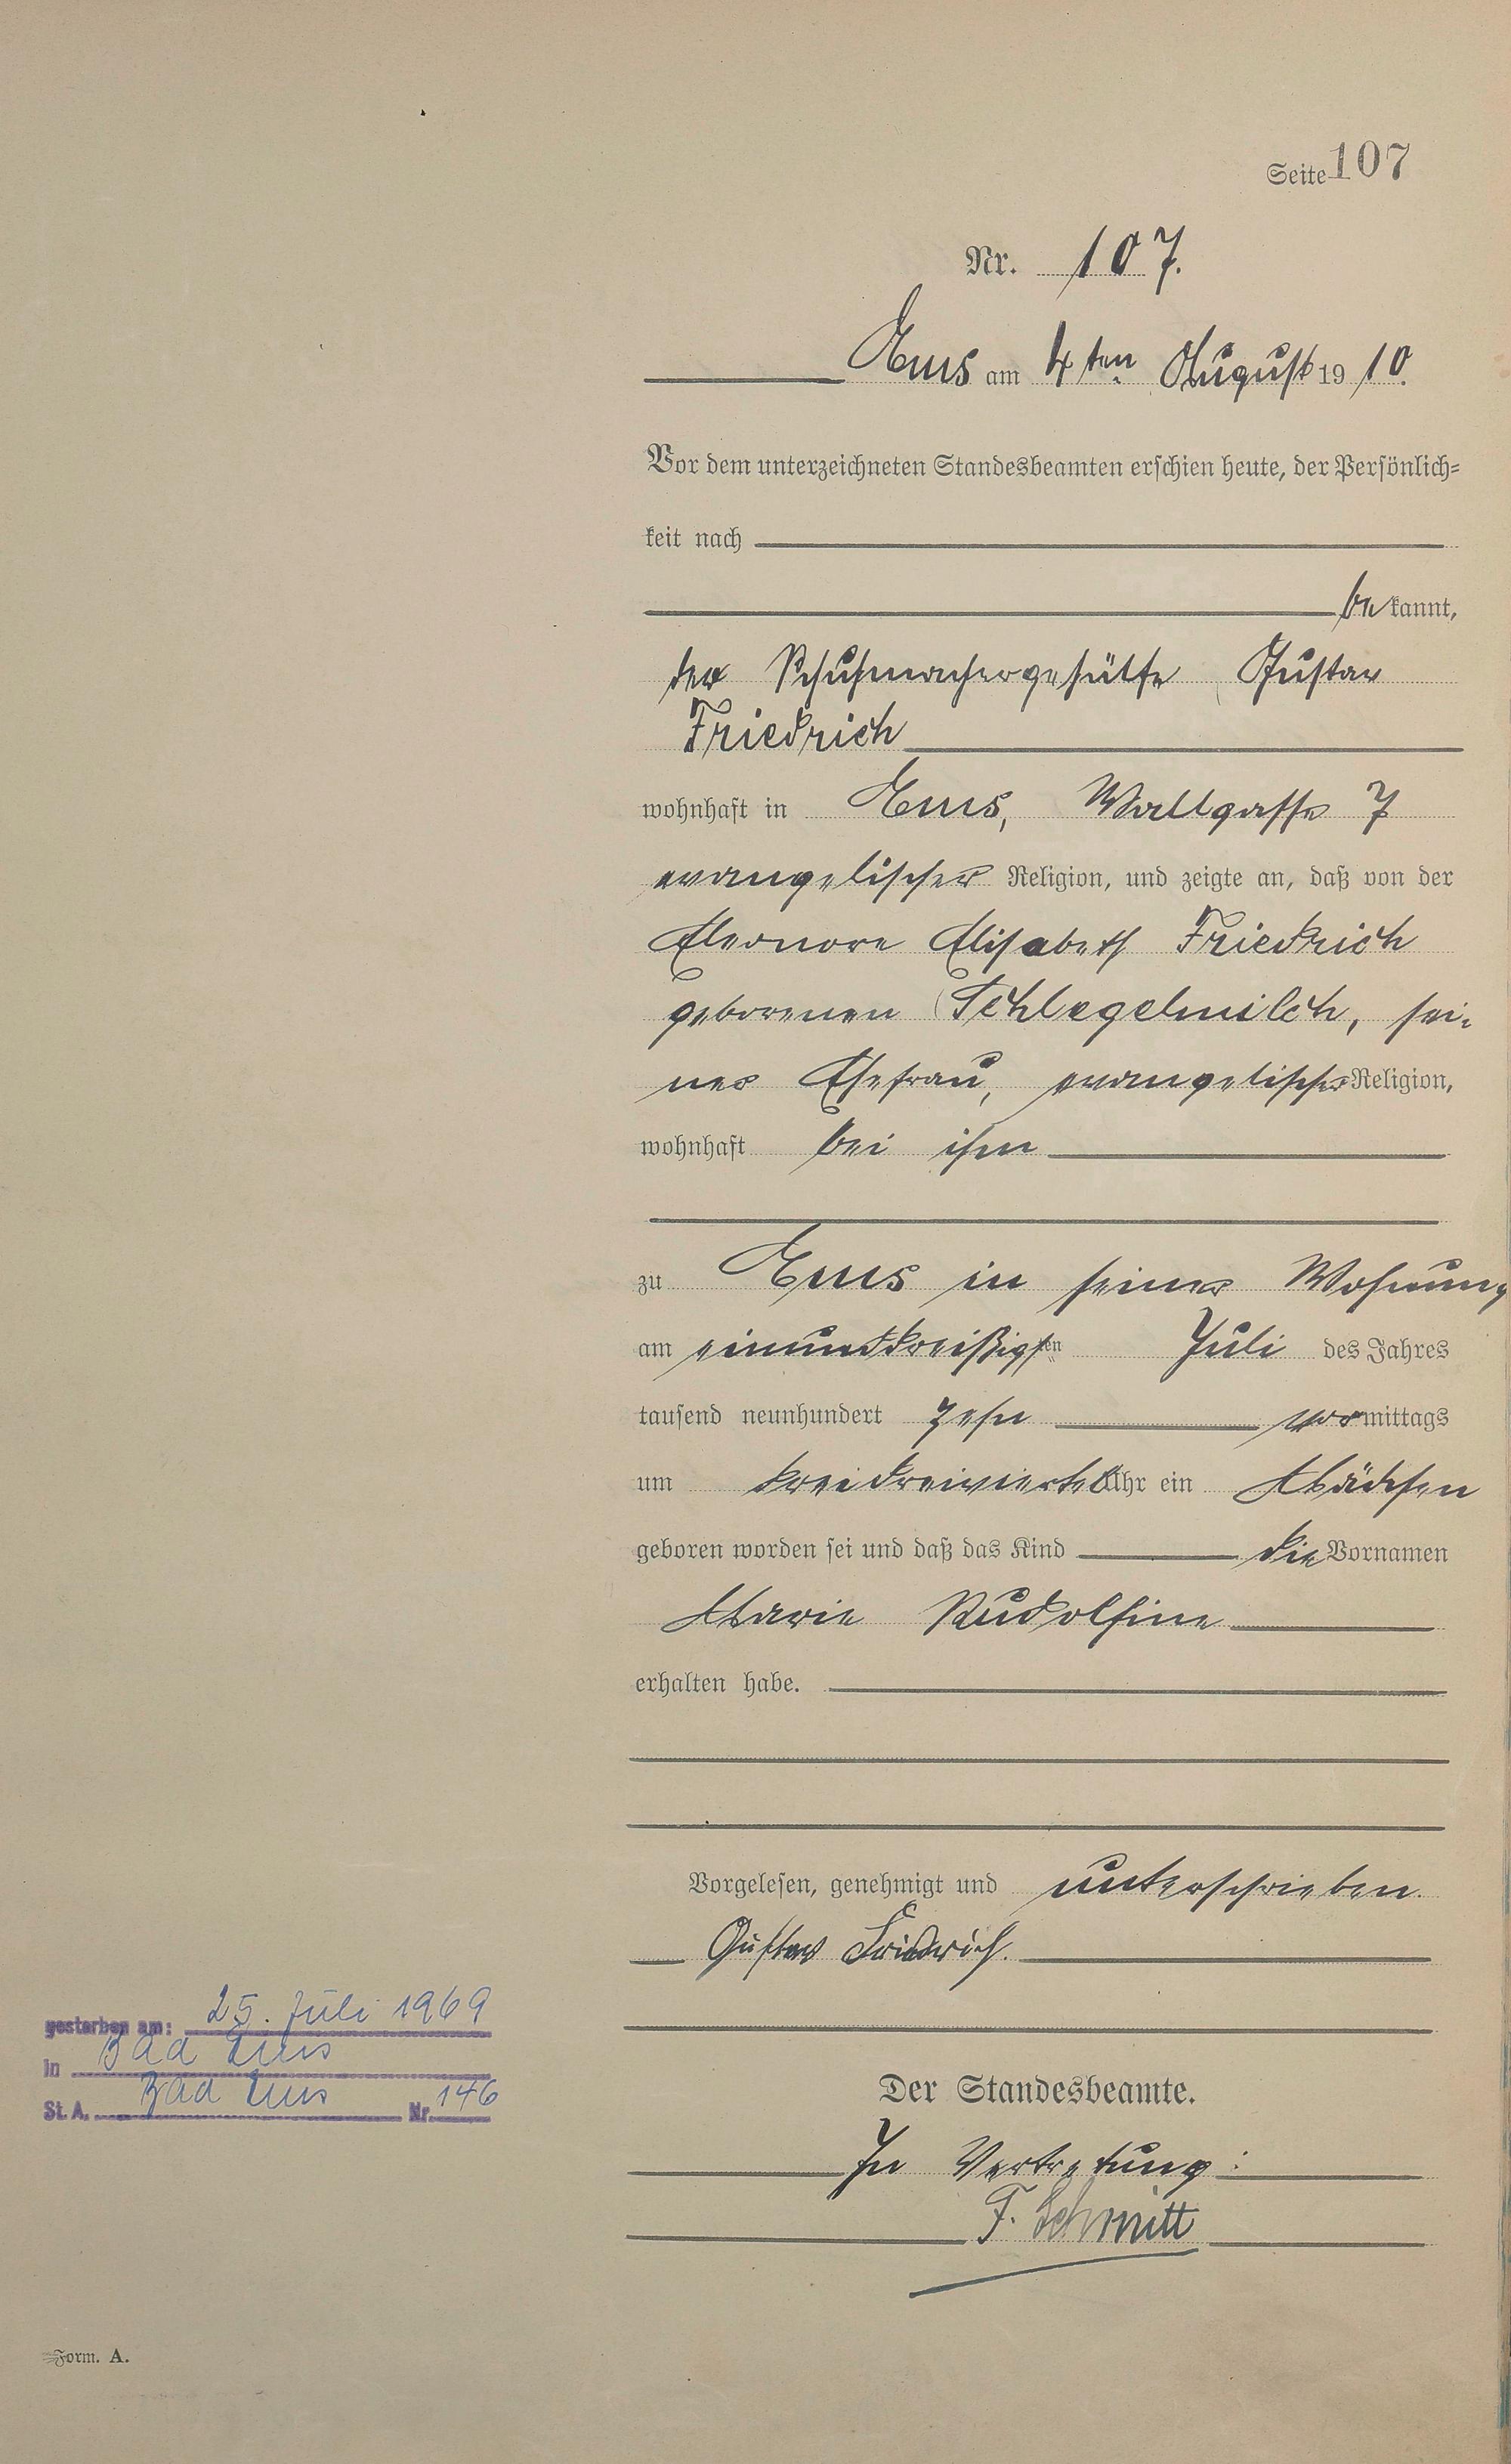 Seite 107
Nr. 107.
Ems am 4ten August 19 10.
Vor dem unterzeichneten Standesbeamten erschien heute, der Persönlich-
keit nach
be kannt,
der Schuhmachergehülfe Gustav
Friedrich
wohnhaft in Ems, Wallgasse 7
evangelischer Religion, und zeigte an, daß von der
Eleonore Elisabeth Friedrich
geborenen Schlegelmilch, sei-
ner Ehefrau, evangelischer Religion,
wohnhaft bei ihm
zu Ems in seiner Wohnung
am einunddreißigsten Juli des Jahres
tausend neunhundert zehn vor mittags
um dreidreiviertel Uhr ein Mädchen
geboren worden sei und daß das Kind die Vornamen
Marie Rudolfine
erhalten habe.
Vorgelesen, genehmigt und unterschrieben.
Gustav Friedrich.
gestorben am: 25. Juli 1969
in Bad Ems
St. A. Bad Ems Nr. 146
Der Standesbeamte.
In Vertretung:
F. Schmitt
Form. A.